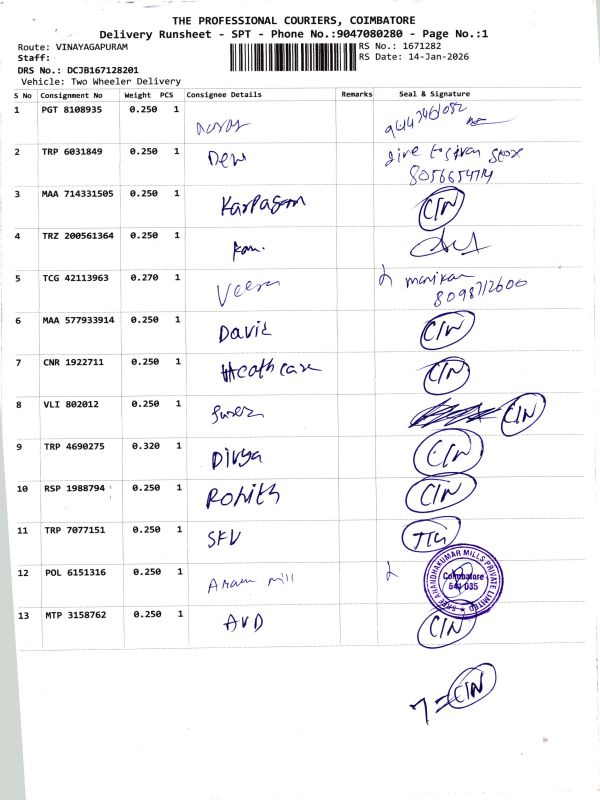 THE PROFESSIONAL COURIERS, COIMBATORE
Delivery Runsheet - SPT - Phone No.:9047080280 - Page No.:1
Route: VINAYAGAPURAM RS No.: 1671282
Staff: RS Date: 14-Jan-2026
DRS No.: DCJB167128201
Vehicle: Two Wheeler Delivery
S No Consignment No Weight PCS Consignee Details Remarks Seal & Signature
1 PGT 8108935 0.250 1
2 TRP 6031849 0.250 1 Dew give to sivan stox
8056654714
3 MAA 714331505 0.250 1 Karpagam CIN
4 TRZ 200561364 0.250 1 kan.
5 TCG 42113963 0.270 1 Veera manikan
8098712600
6 MAA 577933914 0.250 1 David CIN
7 CNR 1922711 0.250 1 Heathcare CIN
8 VLI 802012 0.250 1 CIN
9 TRP 4690275 0.320 1 Divya CIN
10 RSP 1988794 0.250 1 Rohith CIN
11 TRP 7077151 0.250 1 SKV
12 POL 6151316 0.250 1 Anam mill
SREE ANANDHAKUMAR MILLS PRIVATE LIMITED
Coimbatore
641 035
13 MTP 3158762 0.250 1 AVD CIN
7 = CIN